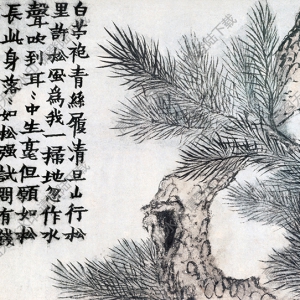 白苧袍青絲履清旦山行松
里許松風為我一掃地忽作水
聲吹到耳耳中生毫但願如松
長此身落落如松強試問有錢